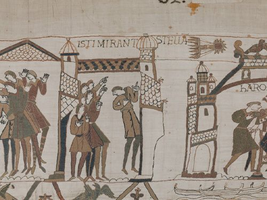 ISTI MIRANT STELLA
hARO